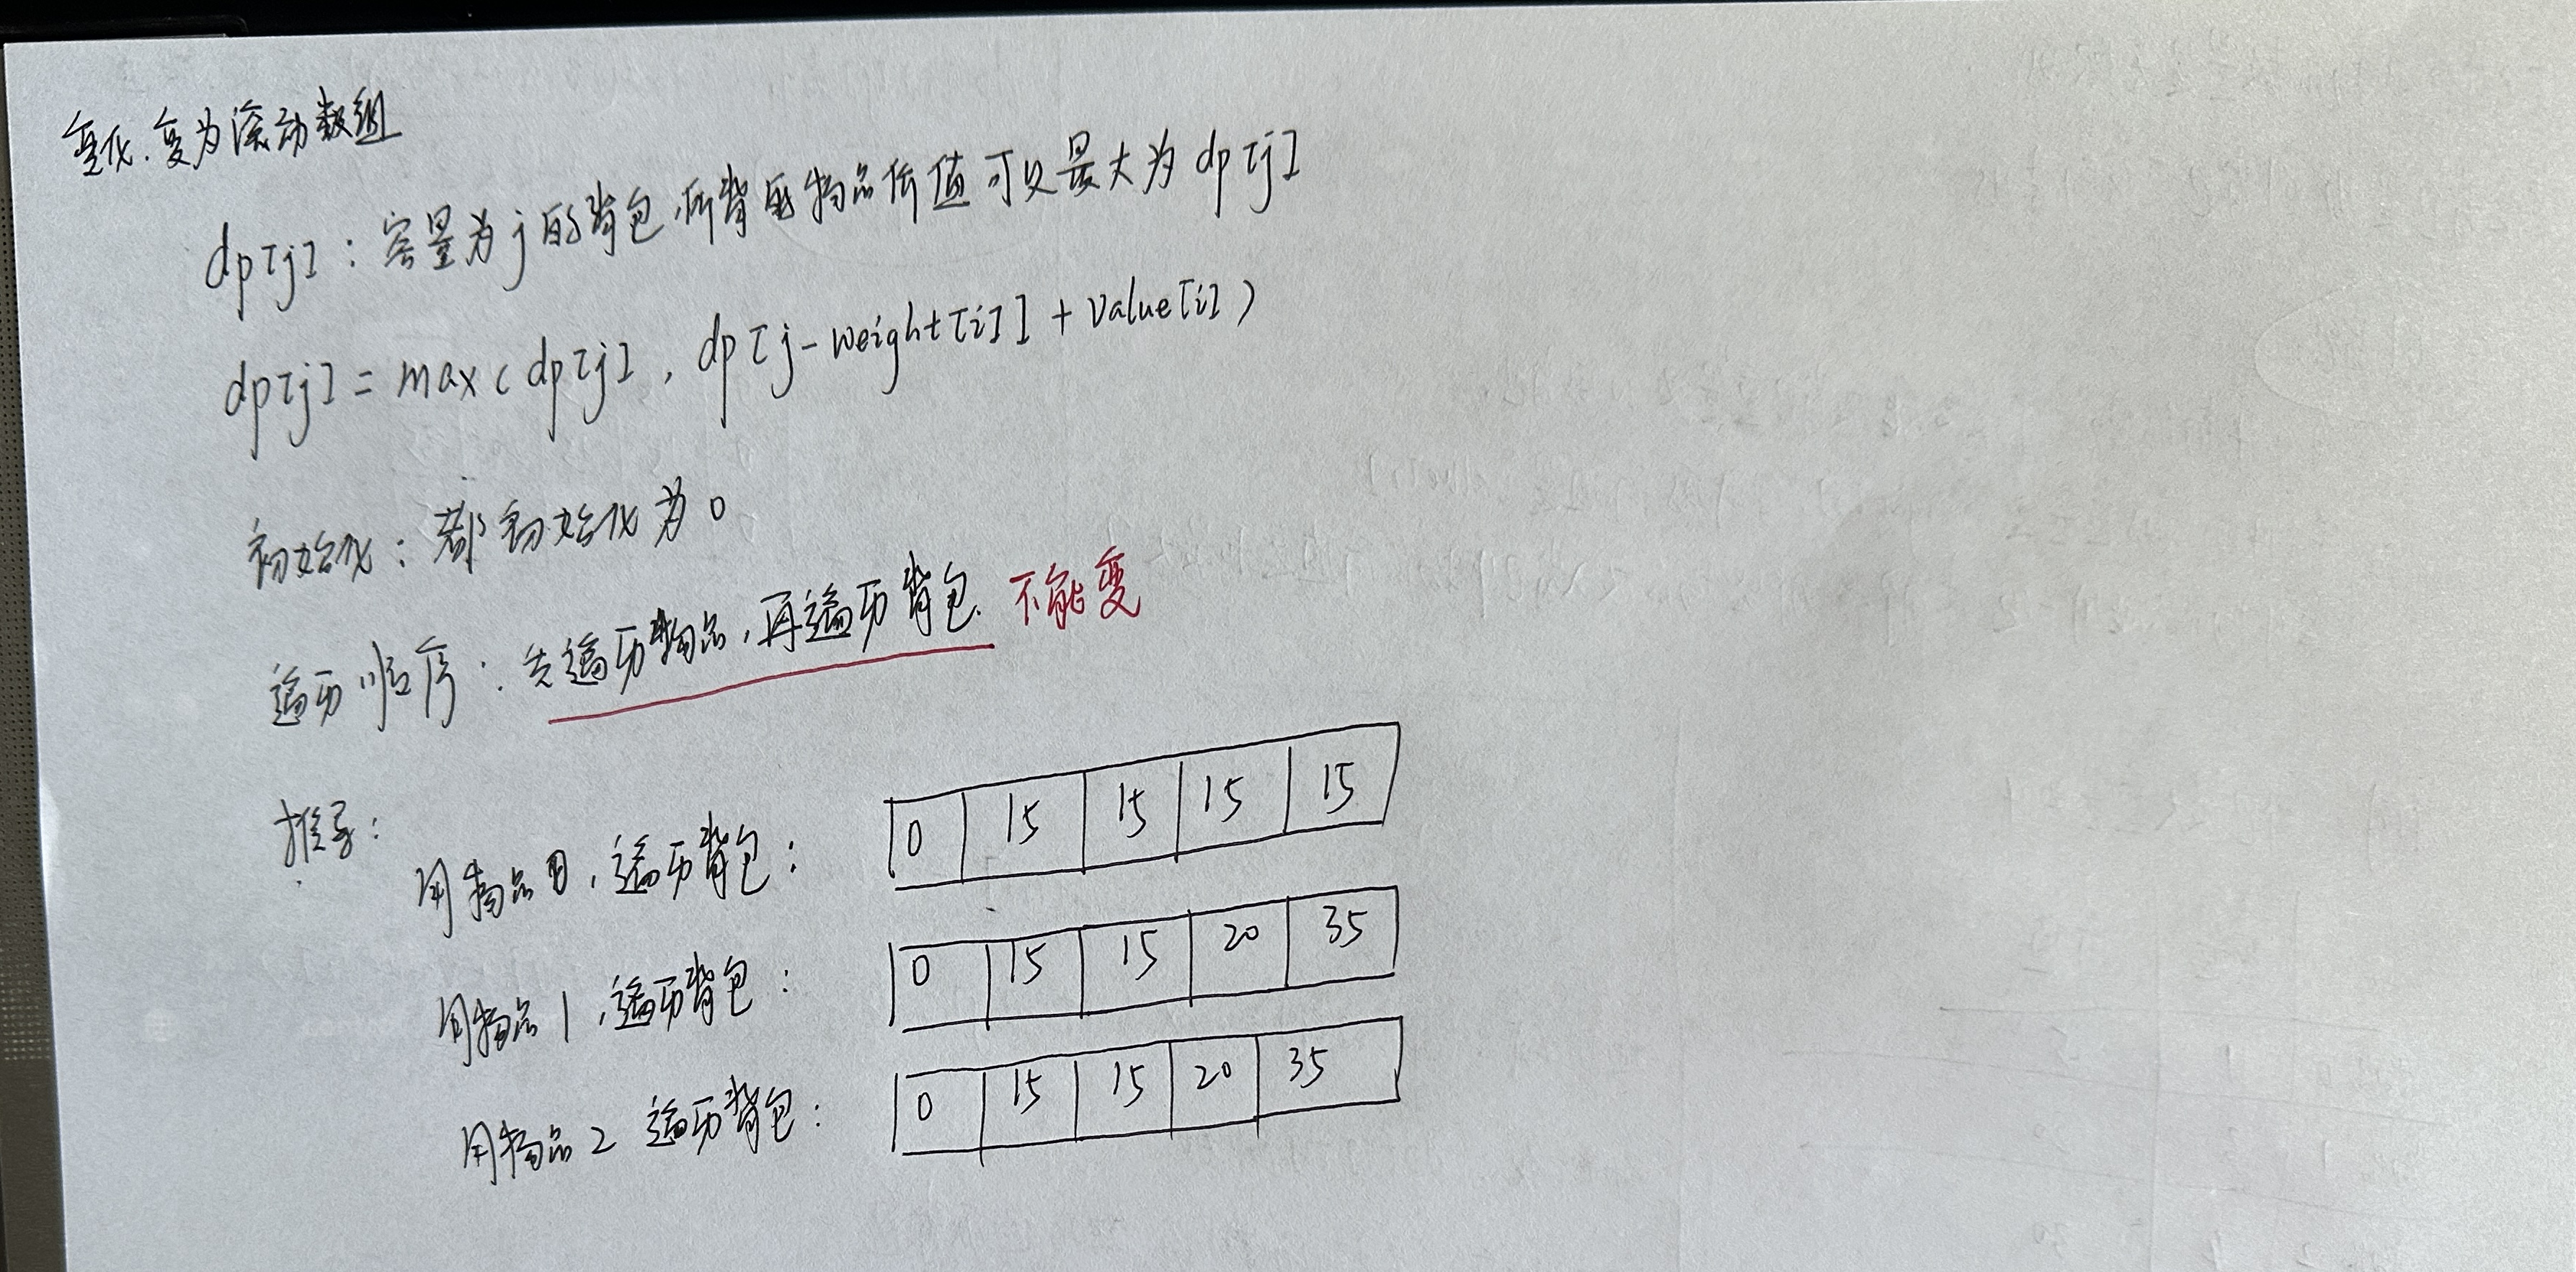 变化.变为滚动数组
dp[j]：容量为j的背包,所背的物品价值可以最大为dp[j]
dp[j] = max(dp[j], dp[j-weight[i]] + value[i])
初始化：都初始化为0
遍历顺序：先遍历物品,再遍历背包. 不能变
推导：
用物品0,遍历背包： 0 15 15 15 15
用物品1,遍历背包： 0 15 15 20 35
用物品2 遍历背包： 0 15 15 20 35